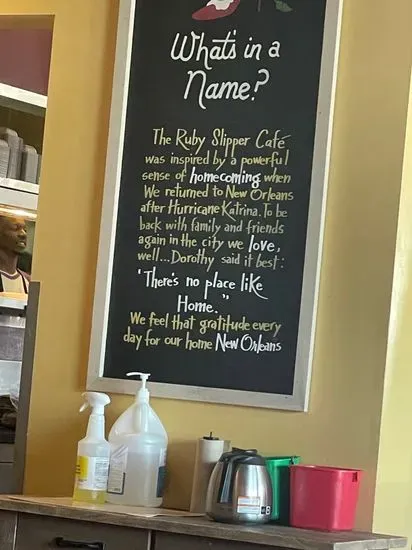 What's in a
Name?
The Ruby Slipper Café
was inspired by a powerful
sense of homecoming when
We returned to New Orleans
after Hurricane Katrina. To be
back with family and friends
again in the city we love,
well...Dorothy said it best:
"There's no place like
Home."
We feel that gratitude every
day for our home New Orleans